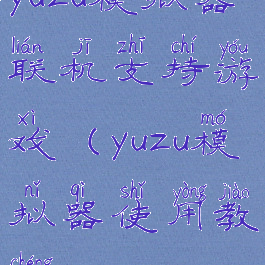 yuzu模拟器
lián jī zhī chí yóu
联机支持游
xì mó
戏(yuzu模
nǐ qì shǐ yòng jiào
拟器使用教
chéng